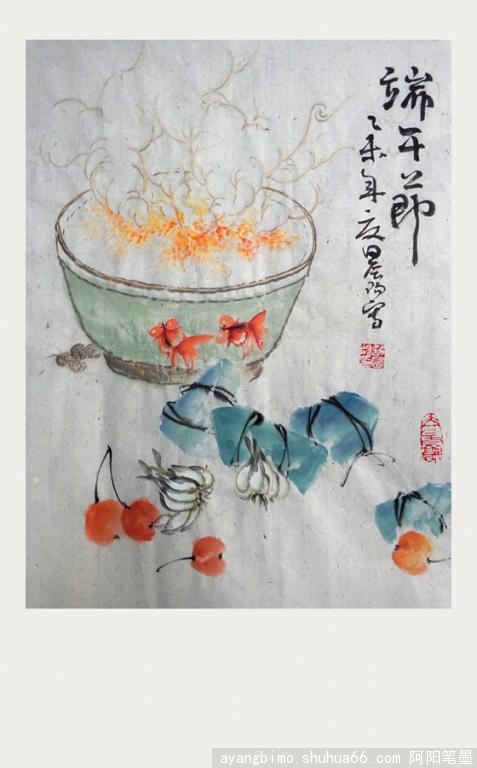 端午节
乙未年夏晨阳写
ayangbimo.shuhua66.com 阿阳笔墨